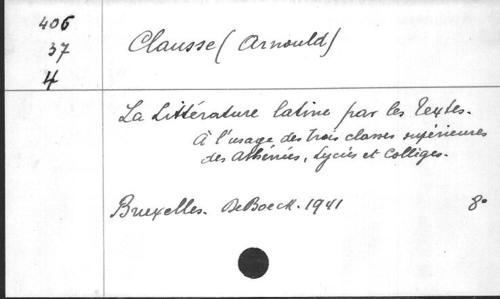 406
37
4
Clausse (Arnould)
La Littérature latine par les Textes.
À l'usage des trois classes supérieures
des Athénées, Lycées et Collèges.
Bruxelles. De Boeck. 1941 8°